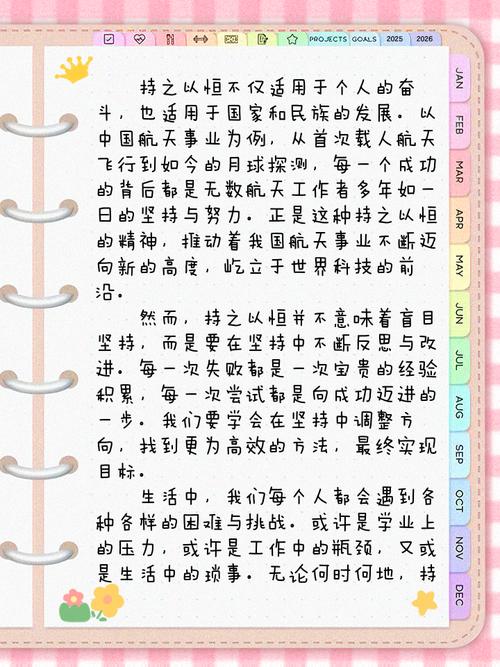 PROJECTS GOALS 2025 2026
持之以恒不仅适用于个人的奋
斗，也适用于国家和民族的发展。以
中国航天事业为例，从首次载人航天
飞行到如今的月球探测，每一个成功
的背后都是无数航天工作者多年如一
日的坚持与努力。正是这种持之以恒
的精神，推动着我国航天事业不断迈
向新的高度，屹立于世界科技的前
沿。
然而，持之以恒并不意味着盲目
坚持，而是要在坚持中不断反思与改
进。每一次失败都是一次宝贵的经验
积累，每一次尝试都是向成功迈进的
一步。我们要学会在坚持中调整方
向，找到更为高效的方法，最终实现
目标。
生活中，我们每个人都会遇到各
种各样的困难与挑战。或许是学业上
的压力，或许是工作中的瓶颈，又或
是生活中的琐事。无论何时何地，持
JAN
FEB
MAR
APR
MAY
JUN
JUL
AUG
SEP
OCT
NOV
DEC